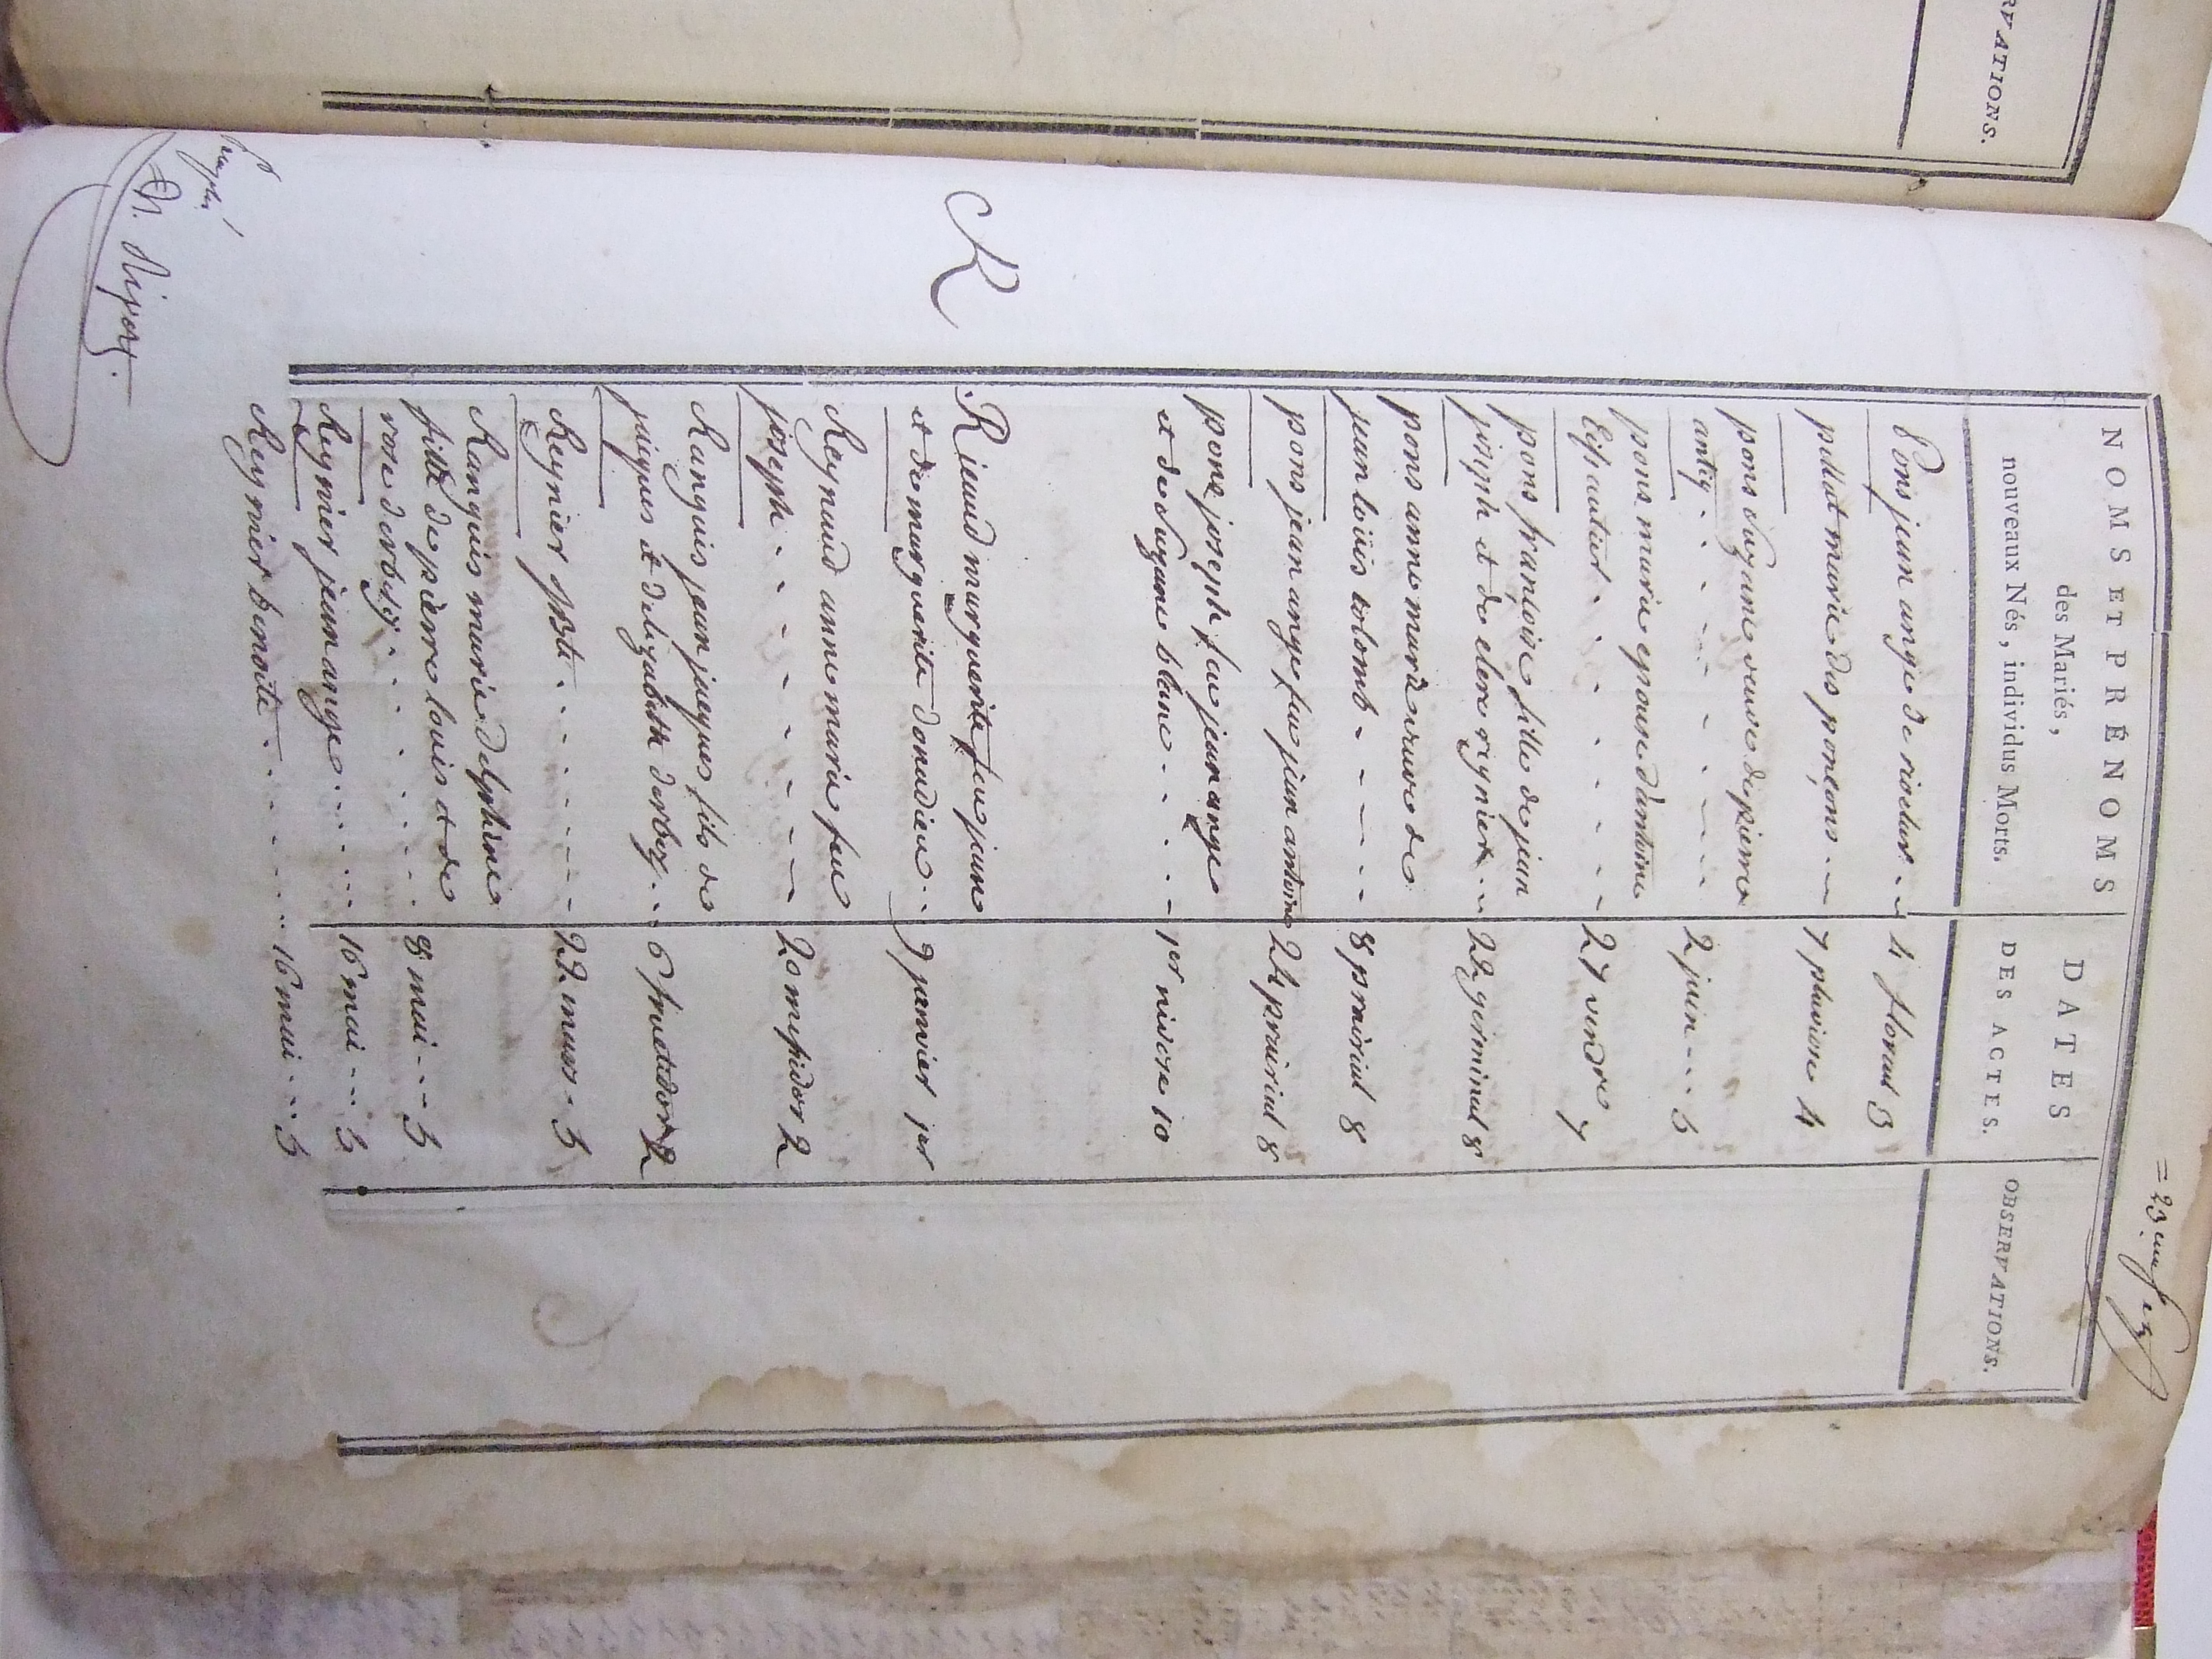 RVATIONS.
= 23
NOMS ET PRÉNOMS
des Mariés,
nouveaux Nés, individus Morts.
DATES
DES ACTES.
OBSERVATIONS.
Pons jean ange de riodur 4 floreal 3
pellat marie des ponçons 7 pluviose 4
pons suzane veuve de pierre
antig 2 juin 5
pons marie epouse d'antoine
Espautier 27 vendre 7
pons françoise fille de jean
joseph et de clere reynier 22 germinal 8
pons anne marie veuve de
jean loüis colomb 8 prairial 8
pons jean ange feu jean antoine 24 prairial 8
pons joseph feu jean ange
et de suzane blanc 1er nivose 10
R
Rieaud marguerite feu jean
et de marguerite donadieu 9 janvier 1er
Reynaud anne marie feu
joseph 20 messidor 2
Ranguis jean jacques fils de
jacques et d'elizabeth derbez 6 fructidor 2
Reynier jBte 22 mars 5
Ranguis marie delphine
fille de pierre louis et de
rose derbez 8 mai 5
Reynier jean ange 16 mai 5
Reynier benoite 16 mai 5